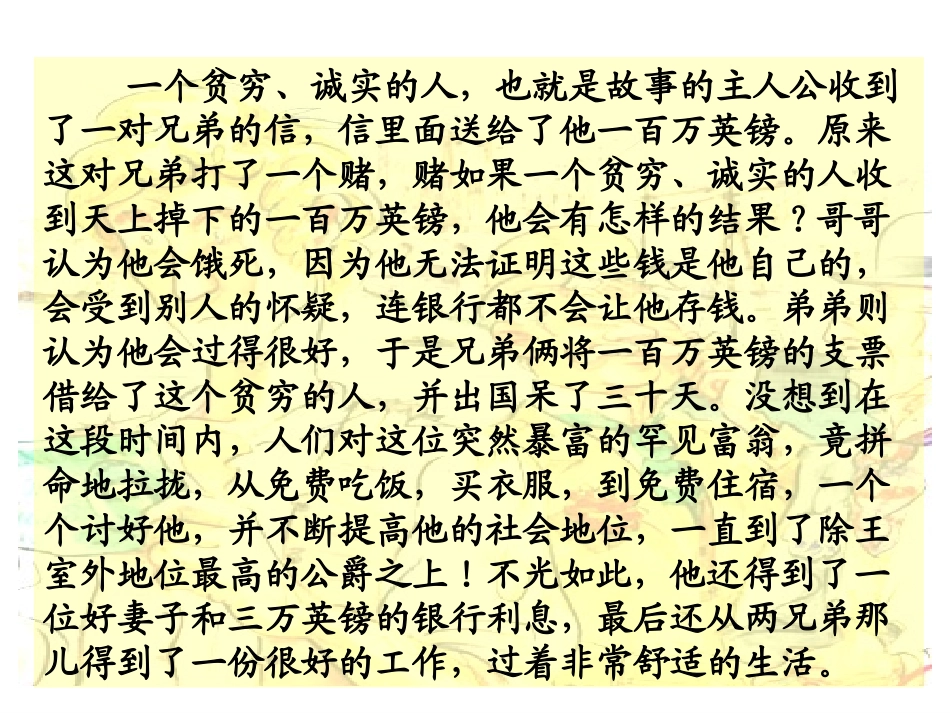 一个贫穷、诚实的人，也就是故事的主人公收到
了一对兄弟的信，信里面送给了他一百万英镑。原来
这对兄弟打了一个赌，赌如果一个贫穷、诚实的人收
到天上掉下的一百万英镑，他会有怎样的结果？哥哥
认为他会饿死，因为他无法证明这些钱是他自己的，
会受到别人的怀疑，连银行都不会让他存钱。弟弟则
认为他会过得很好，于是兄弟俩将一百万英镑的支票
借给了这个贫穷的人，并出国呆了三十天。没想到在
这段时间内，人们对这位突然暴富的罕见富翁，竟拼
命地拉拢，从免费吃饭，买衣服，到免费住宿，一个
个讨好他，并不断提高他的社会地位，一直到了除王
室外地位最高的公爵之上！不光如此，他还得到了一
位好妻子和三万英镑的银行利息，最后还从两兄弟那
儿得到了一份很好的工作，过着非常舒适的生活。